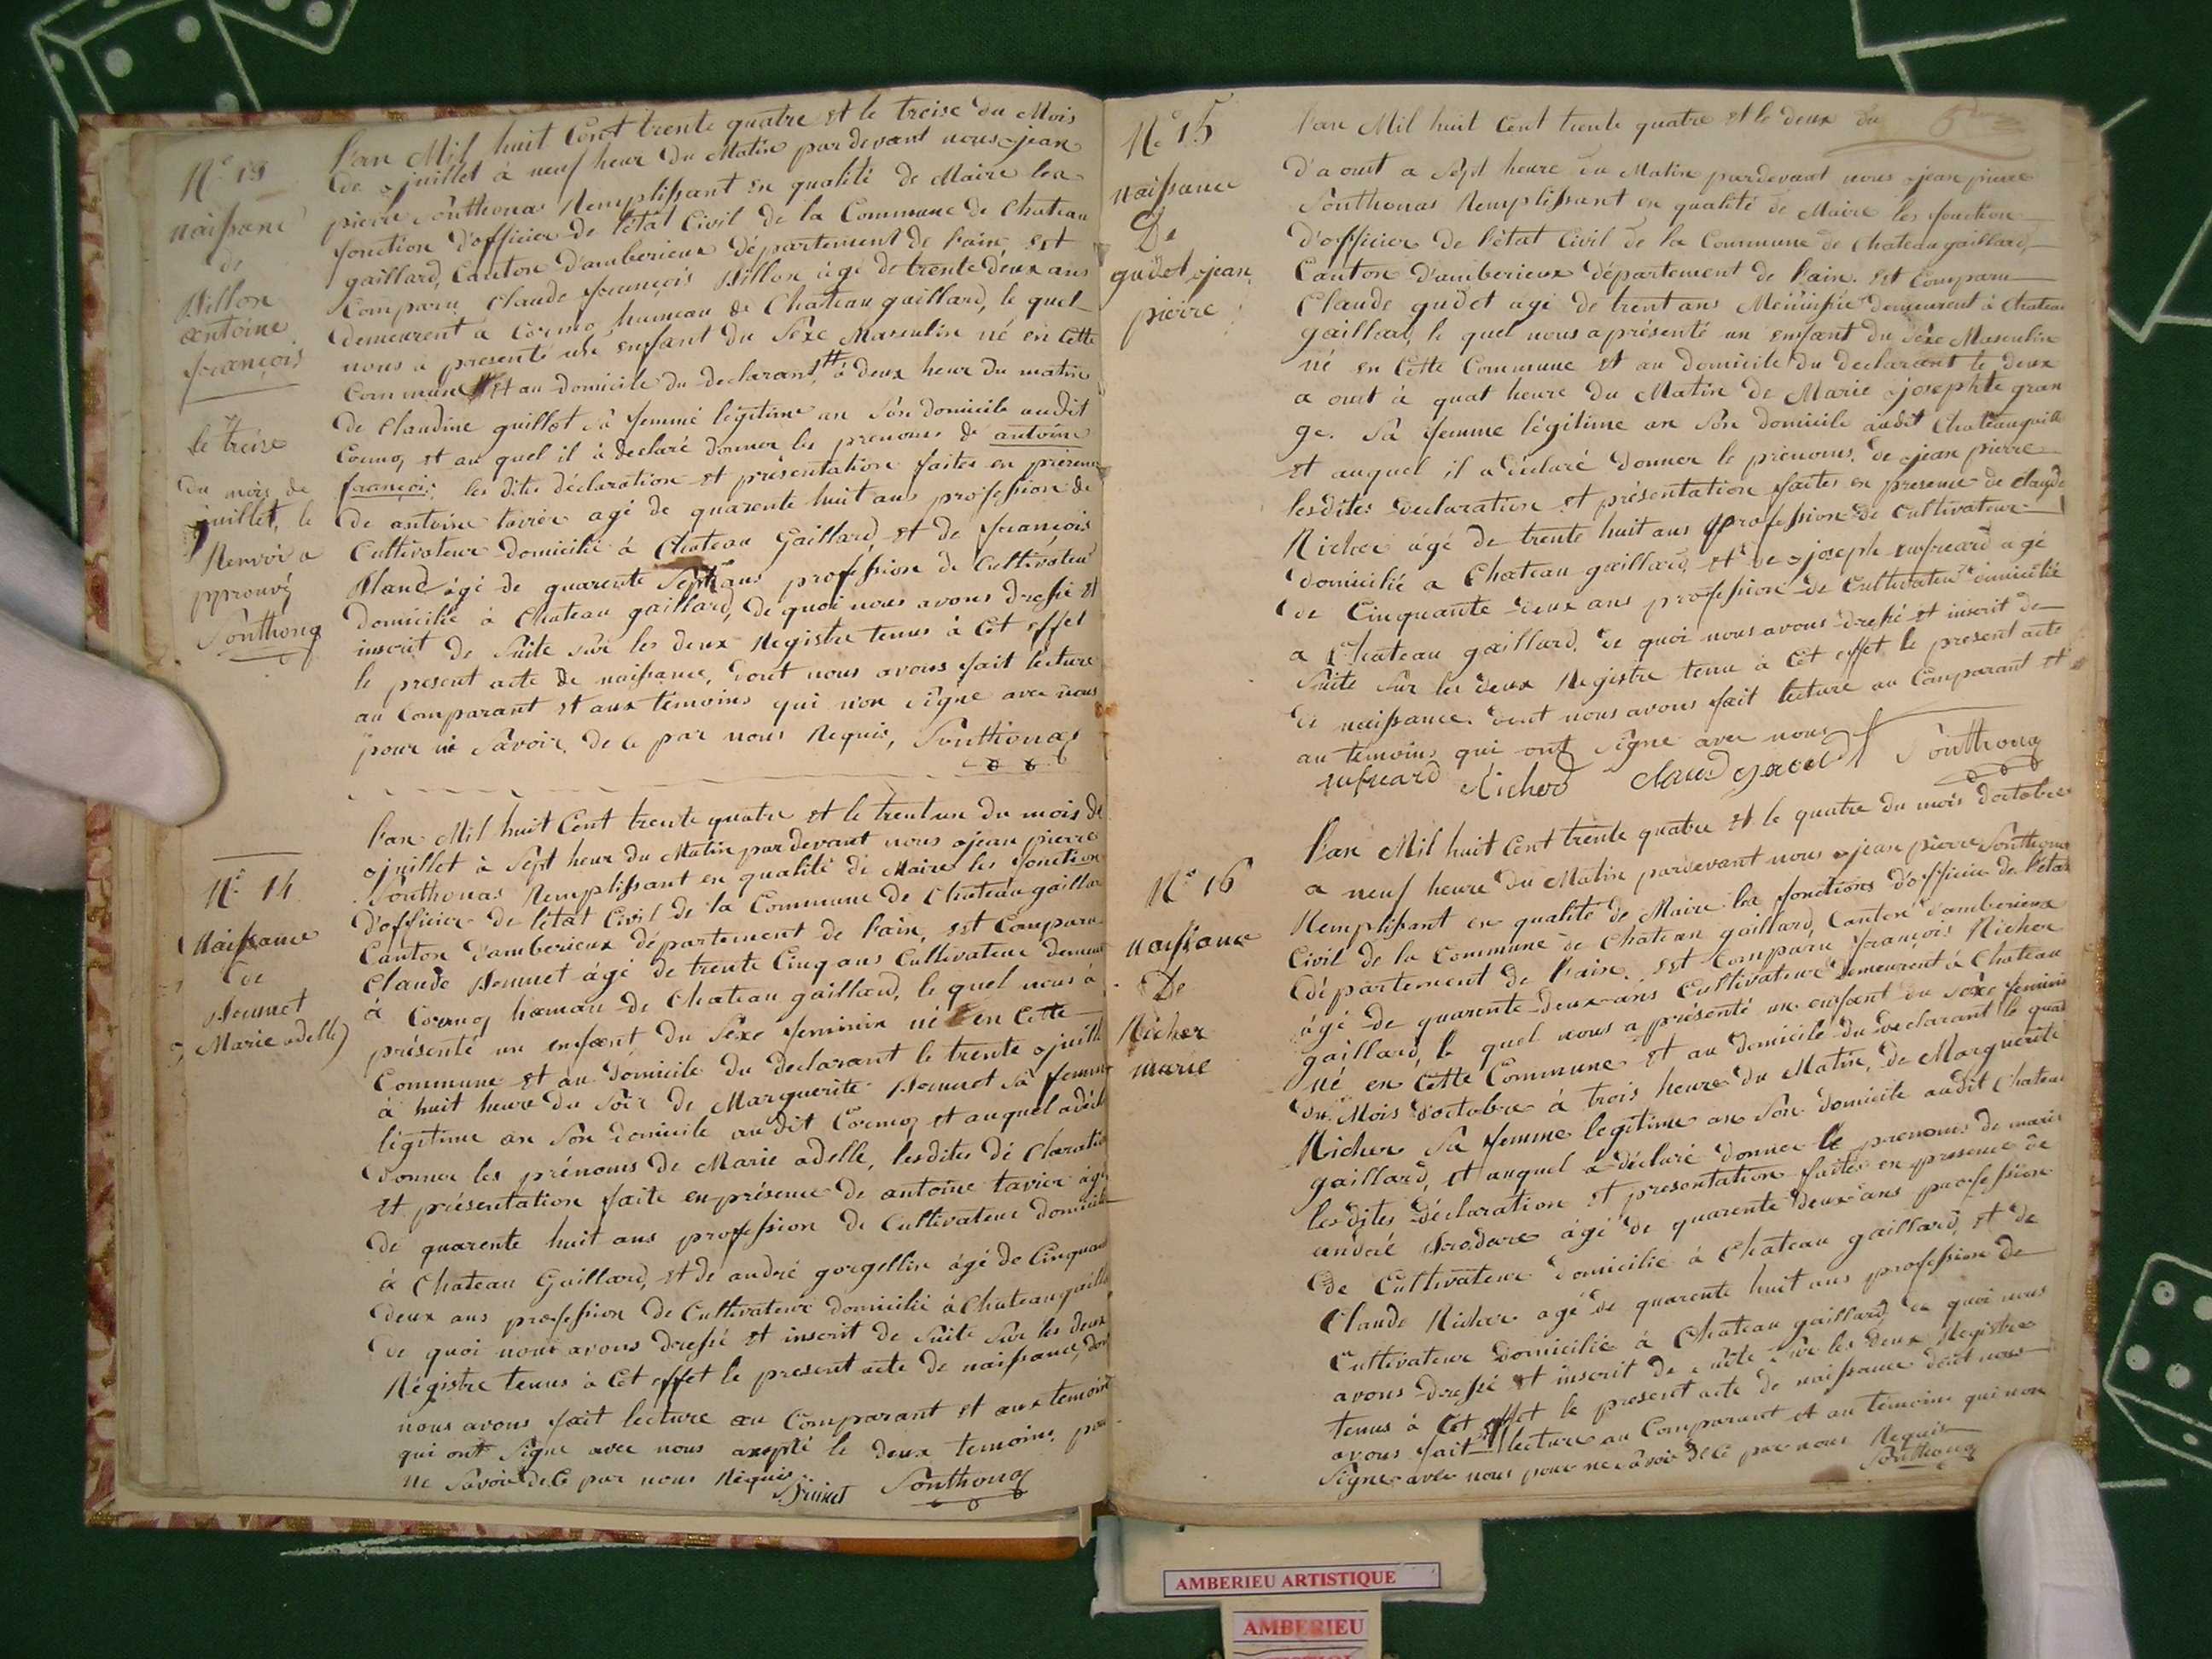 N.° 13
naissance
de
Billon
antoine
françois
L'an Mil huit Cent trente quatre et le treise du Mois
de juillet à neuf heur du Matin pardevant nous jean
pierre Sonthonas Remplissant en qualité de Maire les
fonction d'officier de l'état Civil de la Commune de Chateau
gaillard, Canton d'amberieux département de l'ain, est
Comparu Claude françois Billon âgé de trente deux ans
demeurent à Cormoz hameau de Chateau gaillard, le quel
nous à presenté un enfant du Sexe Masculin né en Cette
Commune et au domicile du declarant, à deux heur du matin
de Claudine guillot Sa femme legitime an Son domicile audit
Cormoz et au quel il à declaré donner les prenoms de antoine
françois; les dites déclaration et présentation faites en présence
de antoine tavier agé de quarente huit ans profession de
Cultivateur domicilié à Chateau Gaillard, et de françois
Bland âgé de quarente Sept ans profession de Cultivateur
domicilié à Chateau gaillard, de quoi nous avons dressé et
inscrit de Suite Sur les deux Registre tenus à Cet effet
le present acte de naissance, dont nous avons fait lecture
au Comparant et aux temoins qui n'on Signe avec nous
pour ne Savoir, de Ce par nous Requis, Sonthonas
le treise
du mois de
juillet, le
Renvoi a
pprouvé
Sonthonas
N.° 14
Naissance
de
Bonnet
Marie adelle
L'an Mil huit Cent trente quatre et le trentun du mois de
juillet à Sept heur du Matin par devant nous jean pierre
Sonthonas Remplissant en qualité de Maire les fonction
d'officier de l'état Civil de la Commune de Chateau gaillar
Canton d'amberieux département de l'ain, est Comparu
Claude Bonnet âgé de trente Cinq ans Cultivateur demeur
à Cormoz hamau de Chateau gaillard, le quel nous à
présenté un enfant du Sexe feminin né en Cette
Commune et au domicile du declarant le trente juill
à huit heure du Soir de Marguerite Bonnet Sa femme
légitime an Son domicile audit Cormoz et auquel a décla
donner les prénoms de Marie adelle, lesdites dé Claratio
et présentation faite en présence de antoine tavier âgé
de quarente huit ans profession de Cultivateur domicilié
à Chateau Gaillard, et de andré gorgellin âgé de Cinquan
deux ans profession de Cultivateur domicilié à Chateau gaill
de quoi nous avons dressé et inscrit de Suite Sur les deux
Régistre tenus à Cet effet le present acte de naissance, don
nous avons fait lecture au Comparant et aux temoin
qui ont Signe avec nous axepté le deux temoins, pour
ne Savoir de Ce par nous Requis
Bonnet Sonthonas
N.° 15
naissance
De
gudet jean
pierre
L'an Mil huit Cent trente quatre et le deux du
d'a oust a Sept heure du Matin pardevant nous jean pierre
Sonthonas Remplissant en qualité de Maire les fonction
d'officier de l'état Civil de la Commune de Chateau gaillard,
Canton d'amberieux département de l'ain. est Comparu
Claude gudet agé de trent ans Menuisié demeurent à Chateau
gaillard, le quel nous a présenté un enfant du Sexe Masculin
né en Cette Commune et au domicile du declarant le deux
a oust à quat heure du Matin de Marie josephte gran
ge. Sa femme légitime an Son domicile audit Chateaugaill
et auquel il a déclaré donner le prénoms. de jean pierre
lesdites declaration et présentation faites en presence de claude
Richer âgé de trente huit ans profession de Cultivateur
domicilié a Chateau gaillard, et de joseph enfreard agé
de Cinquante deux ans profession de Cultivateur domicilié
a Chateau gaillard, de quoi nous avons dressé et inscrit de
Suite Sur les deux Registre tenu à Cet effet le present acte
de naissance. dont nous avons fait lecture au Comparant et
au temoins qui ont Signe avec nous
enfreard Richerd Claud gudet Sonthonas
N.° 16
naissance
De
Richer
marie
L'an Mil huit Cent trente quatre et le quatre du mois d'octobre
a neuf heure du Matin pardevant nous jean pierre Sonthonas
Remplissant en qualité de Maire les fonctions d'officier de l'état
Civil de la Commune de Chateau gaillard, Canton d'amberieux
département de l'ain. est Comparu françois Richer
âgé de quarente deux ans Cultivateur demeurent à Chateau
gaillard, le quel nous a présenté un enfant du Sexe feminin
né en Cette Commune et au domicile du declarant le quat
du Mois d'octobre à trois heure du Matin, de Marguerite
Richer Sa femme legitime an Son domicile audit Chateau
gaillard, et auquel a déclaré donner le prenoms de marie
lesdites déclaration et presentation faites en presence de
andré Brodare âgé de quarente deux ans profession
de Cultivateur domicilié à Chateau gaillard, et de
Claude Richer agé de quarente huit ans profession de
Cultivateur domicilié à Chateau gaillard, de quoi nous
avons dressé et inscrit de suite Sur les deux Registre
tenus à Cet effet le present acte de naissance dont nous
avons fait lecture au Comparant et au temoins qui non
Signe avec nous pour ne savoir de Ce par nous Requis
Sonthonas
AMBERIEU ARTISTIQUE
AMBERIEU